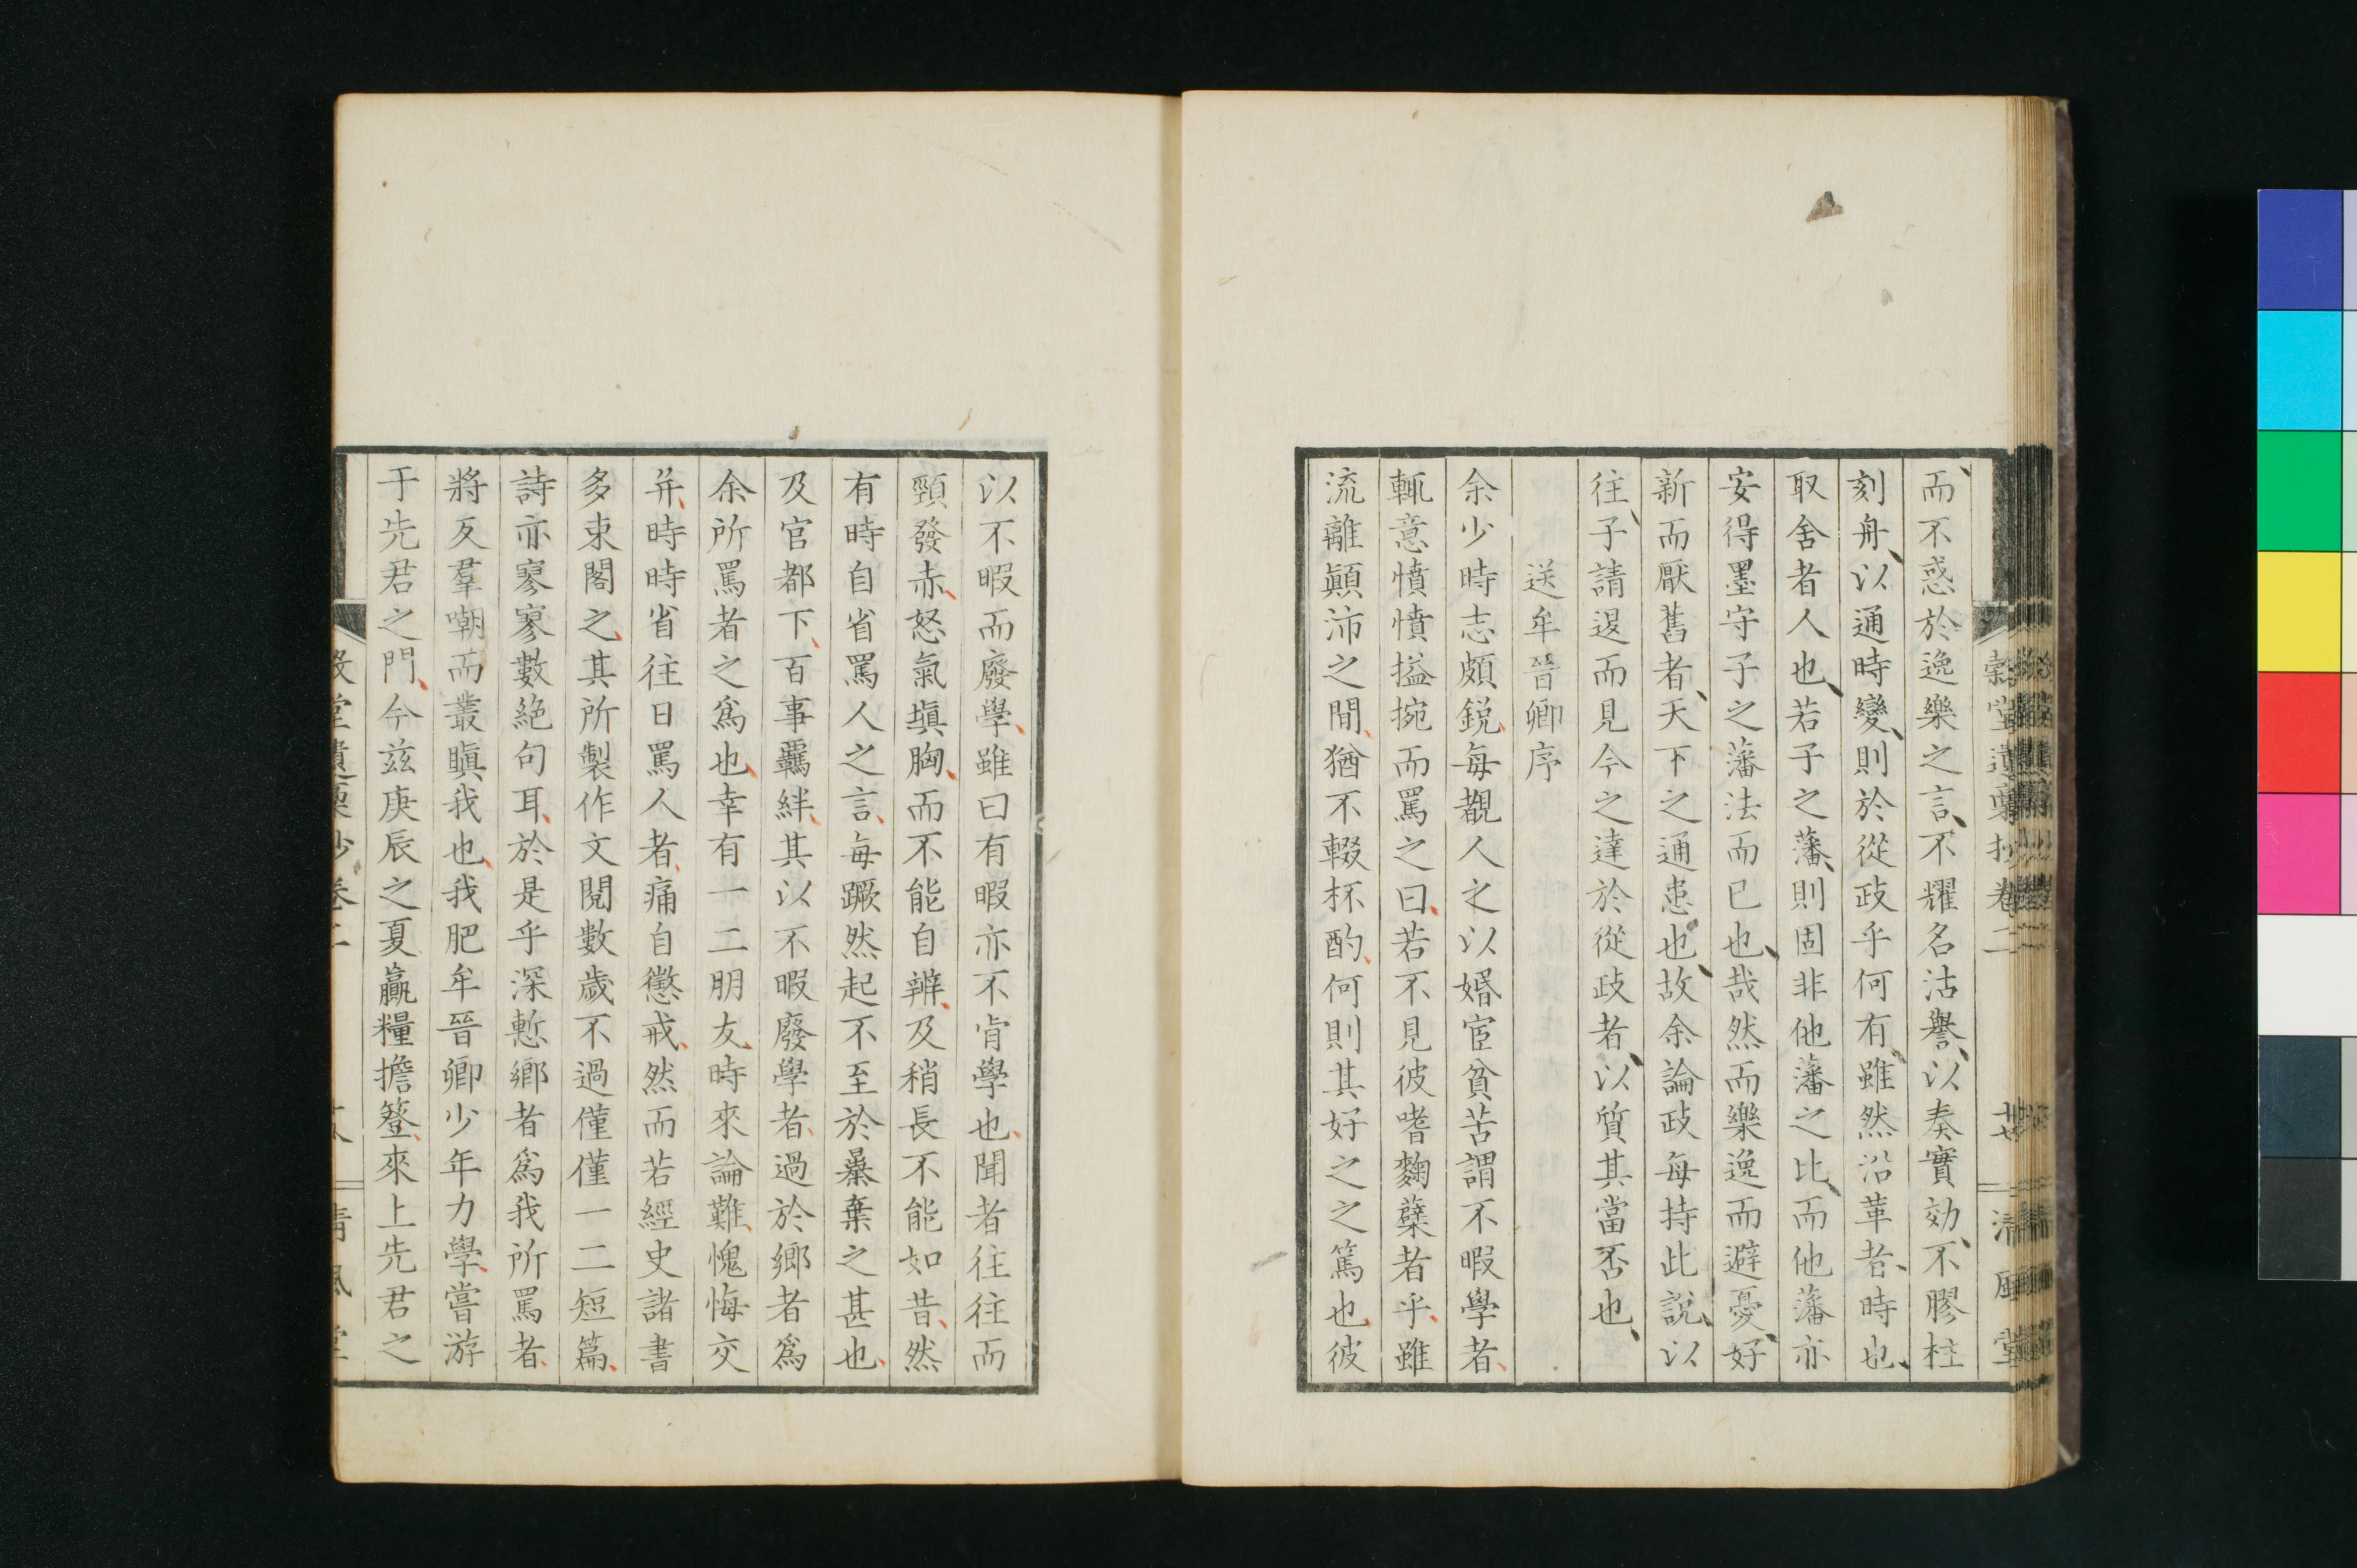 而不惑於逸樂之言不耀名沽譽以奏實効不膠柱
刻舟以通時變則於從政乎何有雖然沿革者時也
取舍者人也若子之藩則固非他藩之比而他藩亦
安得墨守子之藩法而已也哉然而樂逸而避憂好
新而厭舊者天下之通患也故余論政每持此說以
往子請退而見今之達於從政者以質其當否也
送牟晉卿序
余少時志頗銳每觀人之以婚宦貧苦謂不暇學者
輒意憤憤搤捥而罵之曰若不見彼嗜麴蘖者乎雖
流離顛沛之間猶不輟杯酌何則其好之之篤也彼
以不暇而廢學雖曰有暇亦不肯學也聞者往往而
頸發赤怒氣塡胸而不能自辨及稍長不能如昔然
有時自省罵人之言每蹶然起不至於暴棄之甚也
及官都下百事羈絆其以不暇廢學者過於鄉者爲
余所罵者之爲也幸有一二朋友時來論難愧悔交
并時時省往日罵人者痛自懲戒然而若經史諸書
多束閣之其所製作文閱數歲不過僅僅一二短篇
詩亦寥寥數絕句耳於是乎深慙鄉者爲我所罵者
將反羣嘲而叢瞋我也我肥牟晉卿少年力學嘗游
于先君之門今茲庚辰之夏贏糧擔簦來上先君之
穀堂遺稾抄卷二
廿
清風堂